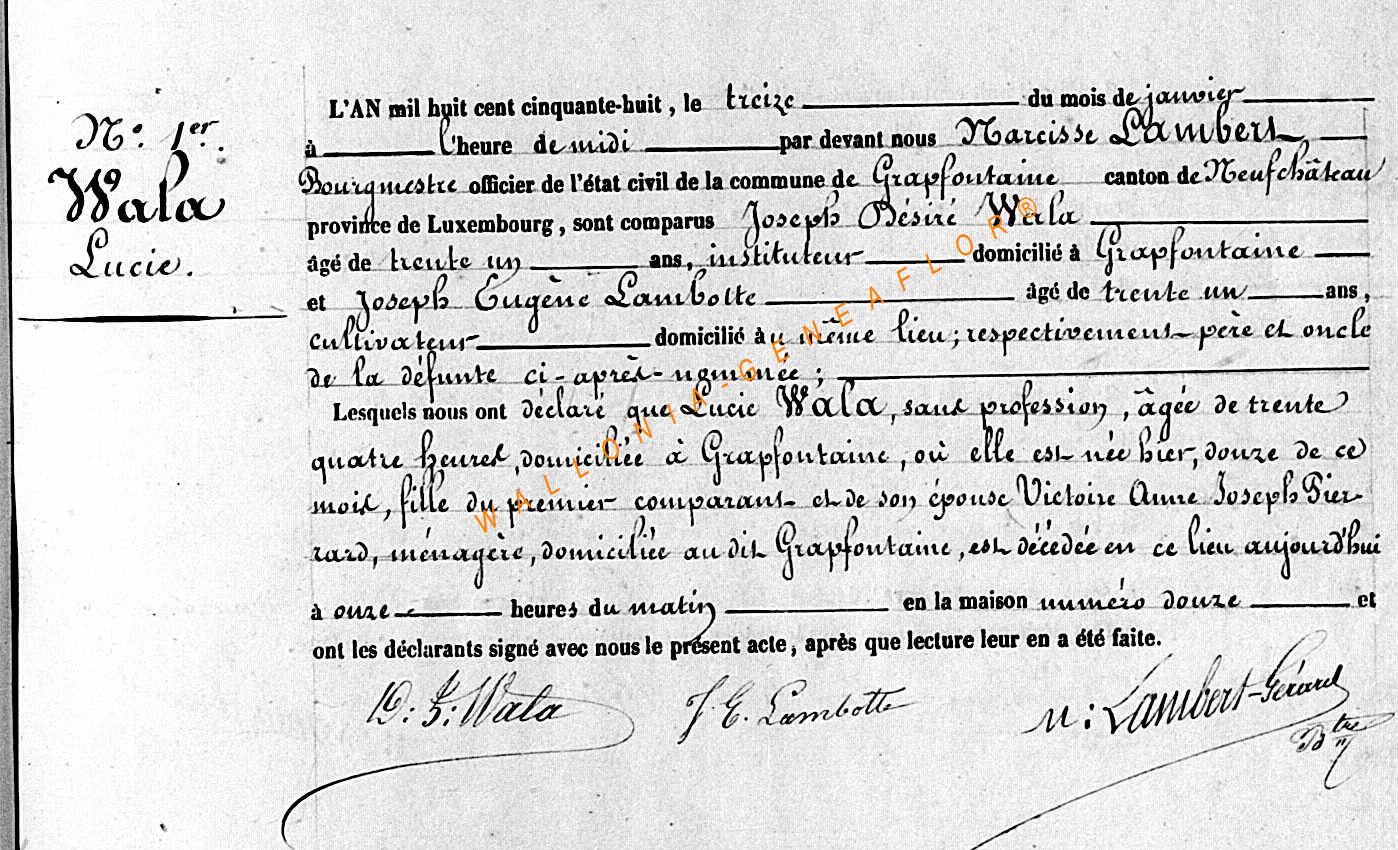 N.º 1er.
Wala
Lucie.
L'AN mil huit cent cinquante-huit, le treize du mois de janvier
à l'heure de midi par devant nous Narcisse Lambert
Bourgmestre officier de l'état civil de la commune de Grapfontaine canton de Neufchâteau
province de Luxembourg, sont comparus Joseph Désiré Wala
âgé de trente un ans, instituteur domicilié à Grapfontaine
et Joseph Eugène Lambotte âgé de trente un ans,
cultivateur domicilié au même lieu; respectivement père et oncle
de la défunte ci-après-nommée;
Lesquels nous ont déclaré que Lucie Wala, sans profession, âgée de trente
quatre heures, domiciliée à Grapfontaine, où elle est née hier, douze de ce
mois, fille du premier comparant et de son épouse Victoire Anne Joseph Pier-
rard, ménagère, domiciliée au dit Grapfontaine, est décédée en ce lieu aujourd'hui
à onze heures du matin en la maison numéro douze et
ont les déclarants signé avec nous le présent acte, après que lecture leur en a été faite.
D. J. Wala J. E. Lambotte N: Lambert-Gérard
Btre
WALLONIA-GENEAFLOR®